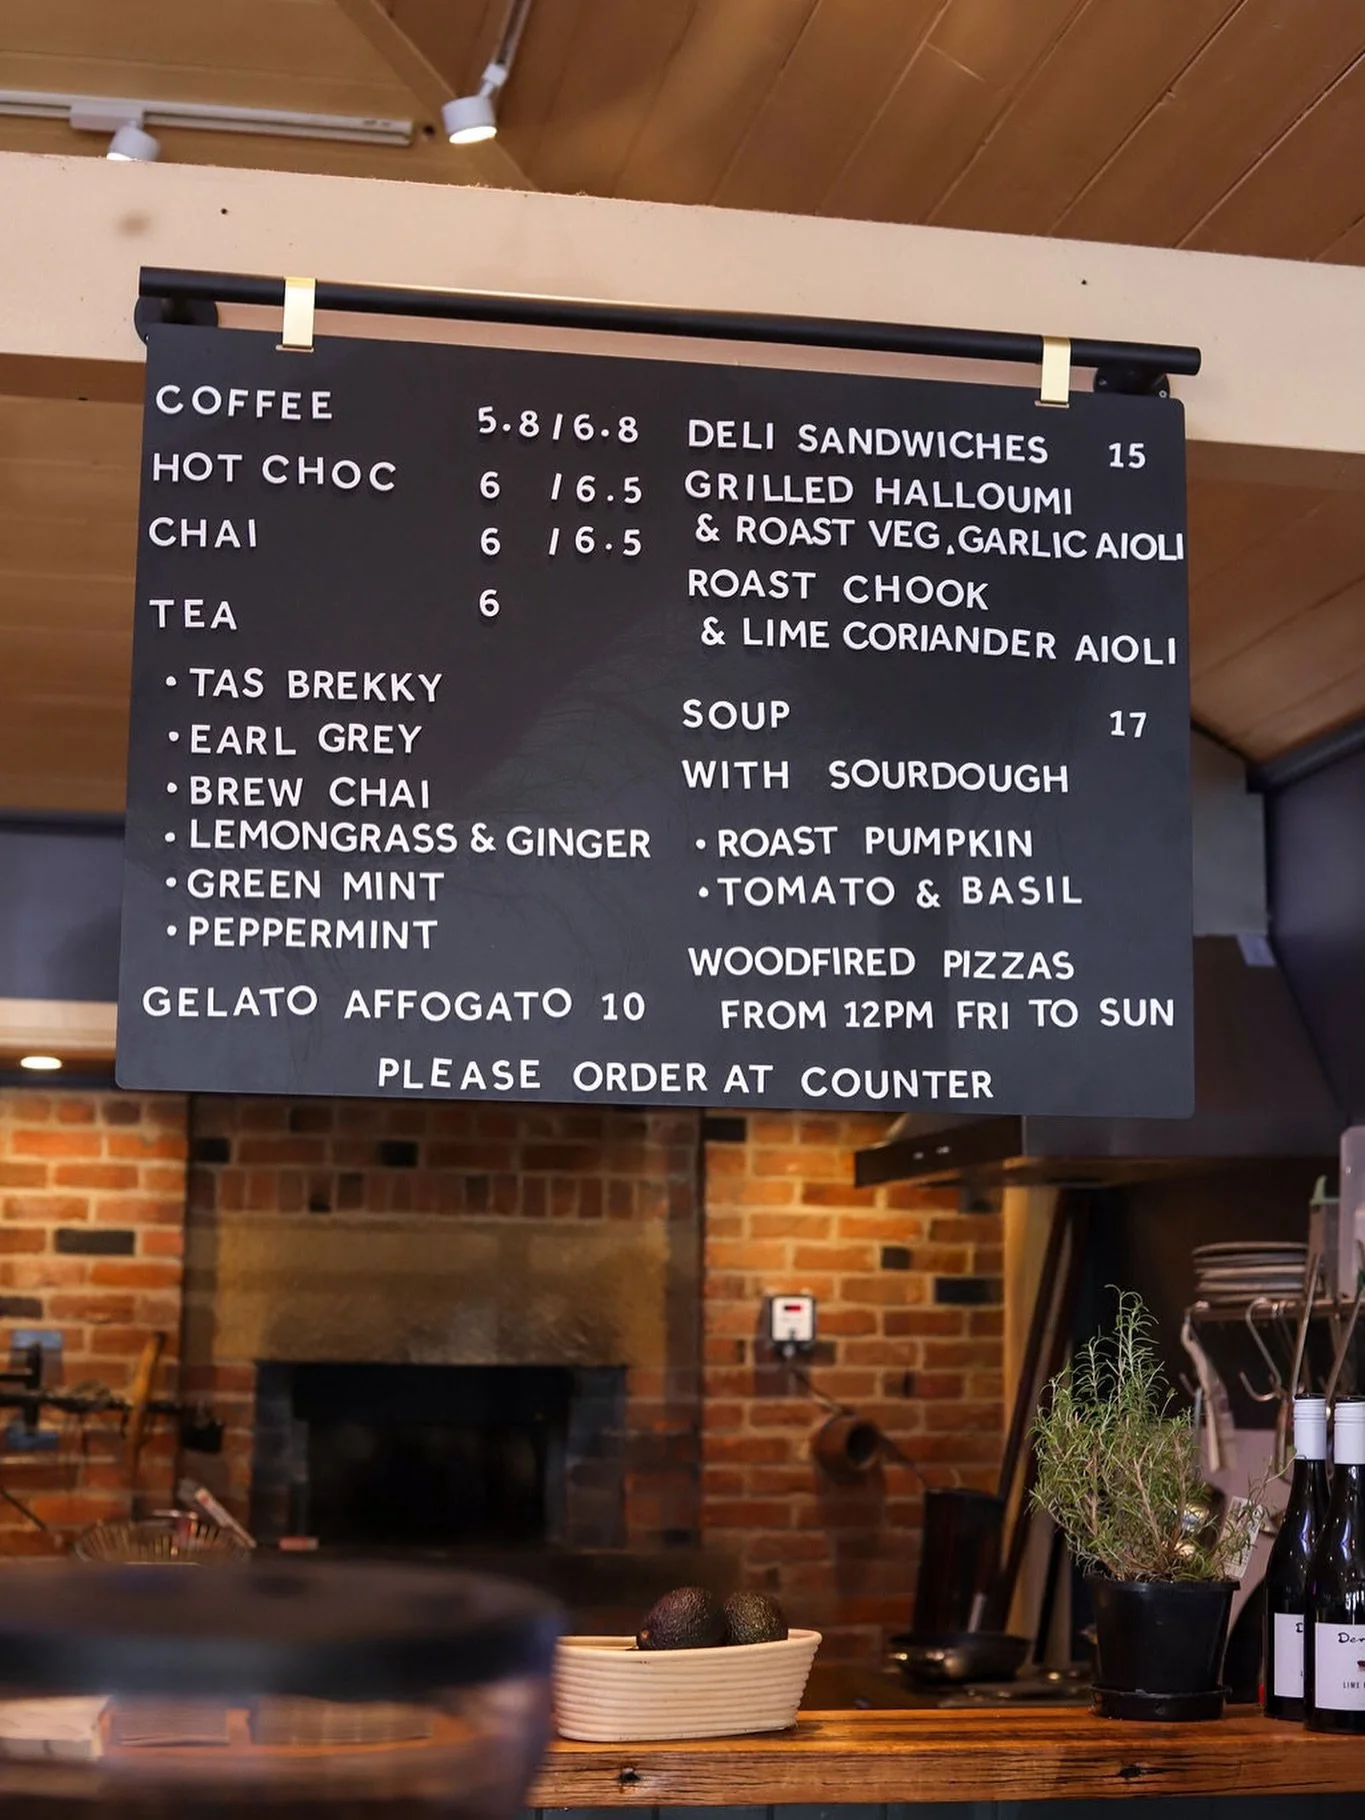 COFFEE 5.8/6.8
HOT CHOC 6 /6.5
CHAI 6 /6.5
TEA 6
• TAS BREKKY
• EARL GREY
• BREW CHAI
• LEMONGRASS & GINGER
• GREEN MINT
• PEPPERMINT
GELATO AFFOGATO 10
DELI SANDWICHES 15
GRILLED HALLOUMI
& ROAST VEG, GARLIC AIOLI
ROAST CHOOK
& LIME CORIANDER AIOLI
SOUP 17
WITH SOURDOUGH
• ROAST PUMPKIN
• TOMATO & BASIL
WOODFIRED PIZZAS
FROM 12PM FRI TO SUN
PLEASE ORDER AT COUNTER